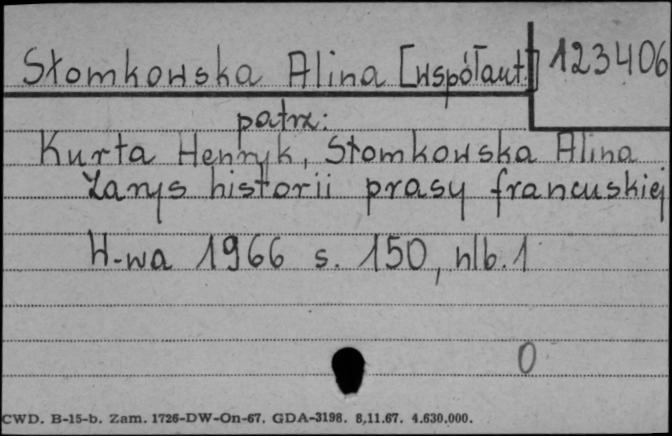 Słomkowska Alina [współaut.] 123406
patrz:
Kurta Henryk, Słomkowska Alina
Zarys historii prasy francuskiej
W-wa 1966 s. 150, nlb. 1
0
CWD. B-15-b. Zam. 1726-DW-On-67. GDA-3198. 8,11.67. 4.630.000.